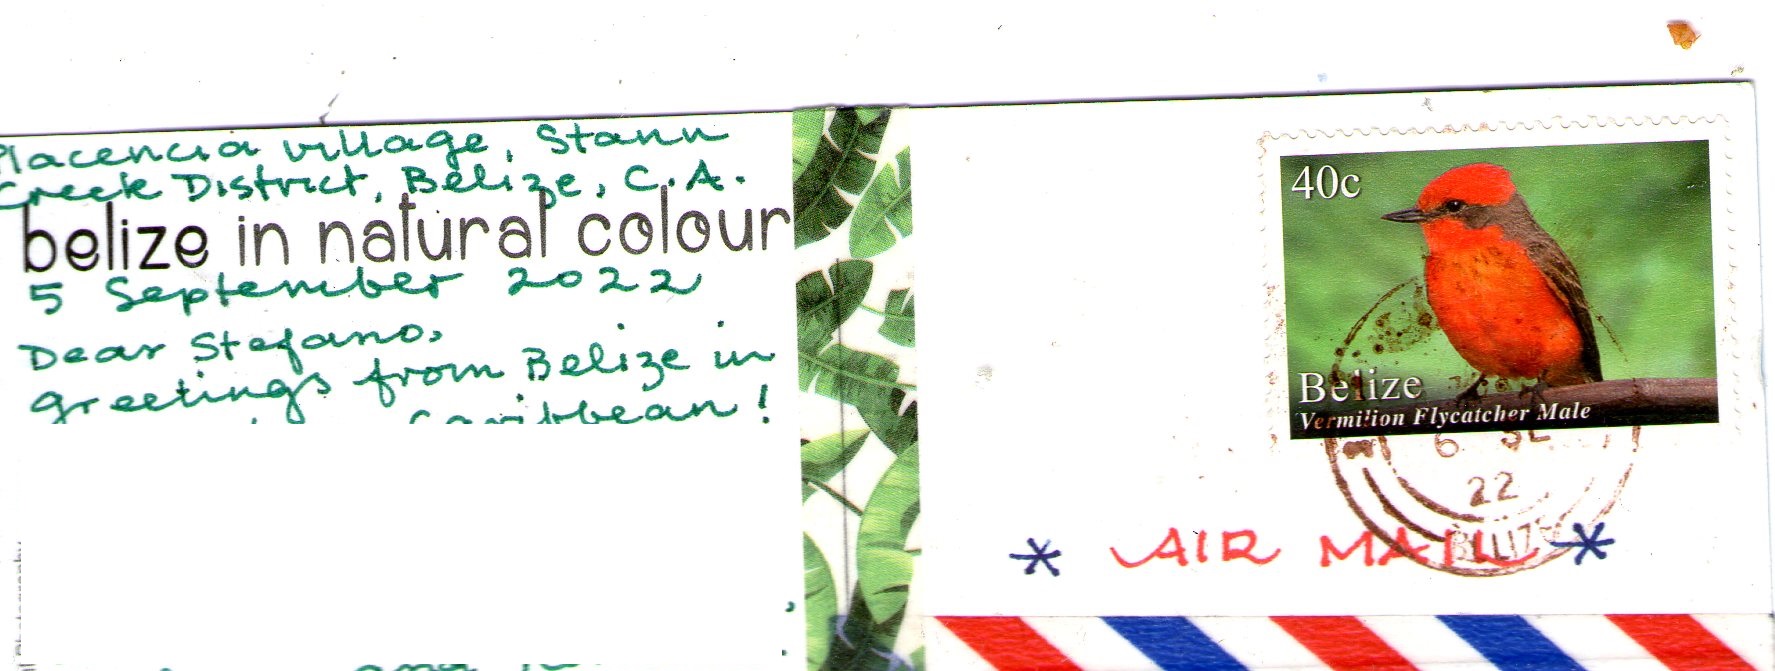 Placencia village, Stann
Creek District, Belize, C.A.
belize in natural colour
5 September 2022
Dear Stefano,
greetings from Belize in
Caribbean!
40c
Belize
Vermilion Flycatcher Male
6 SE
22
BELIZE
* AIR MAIL *